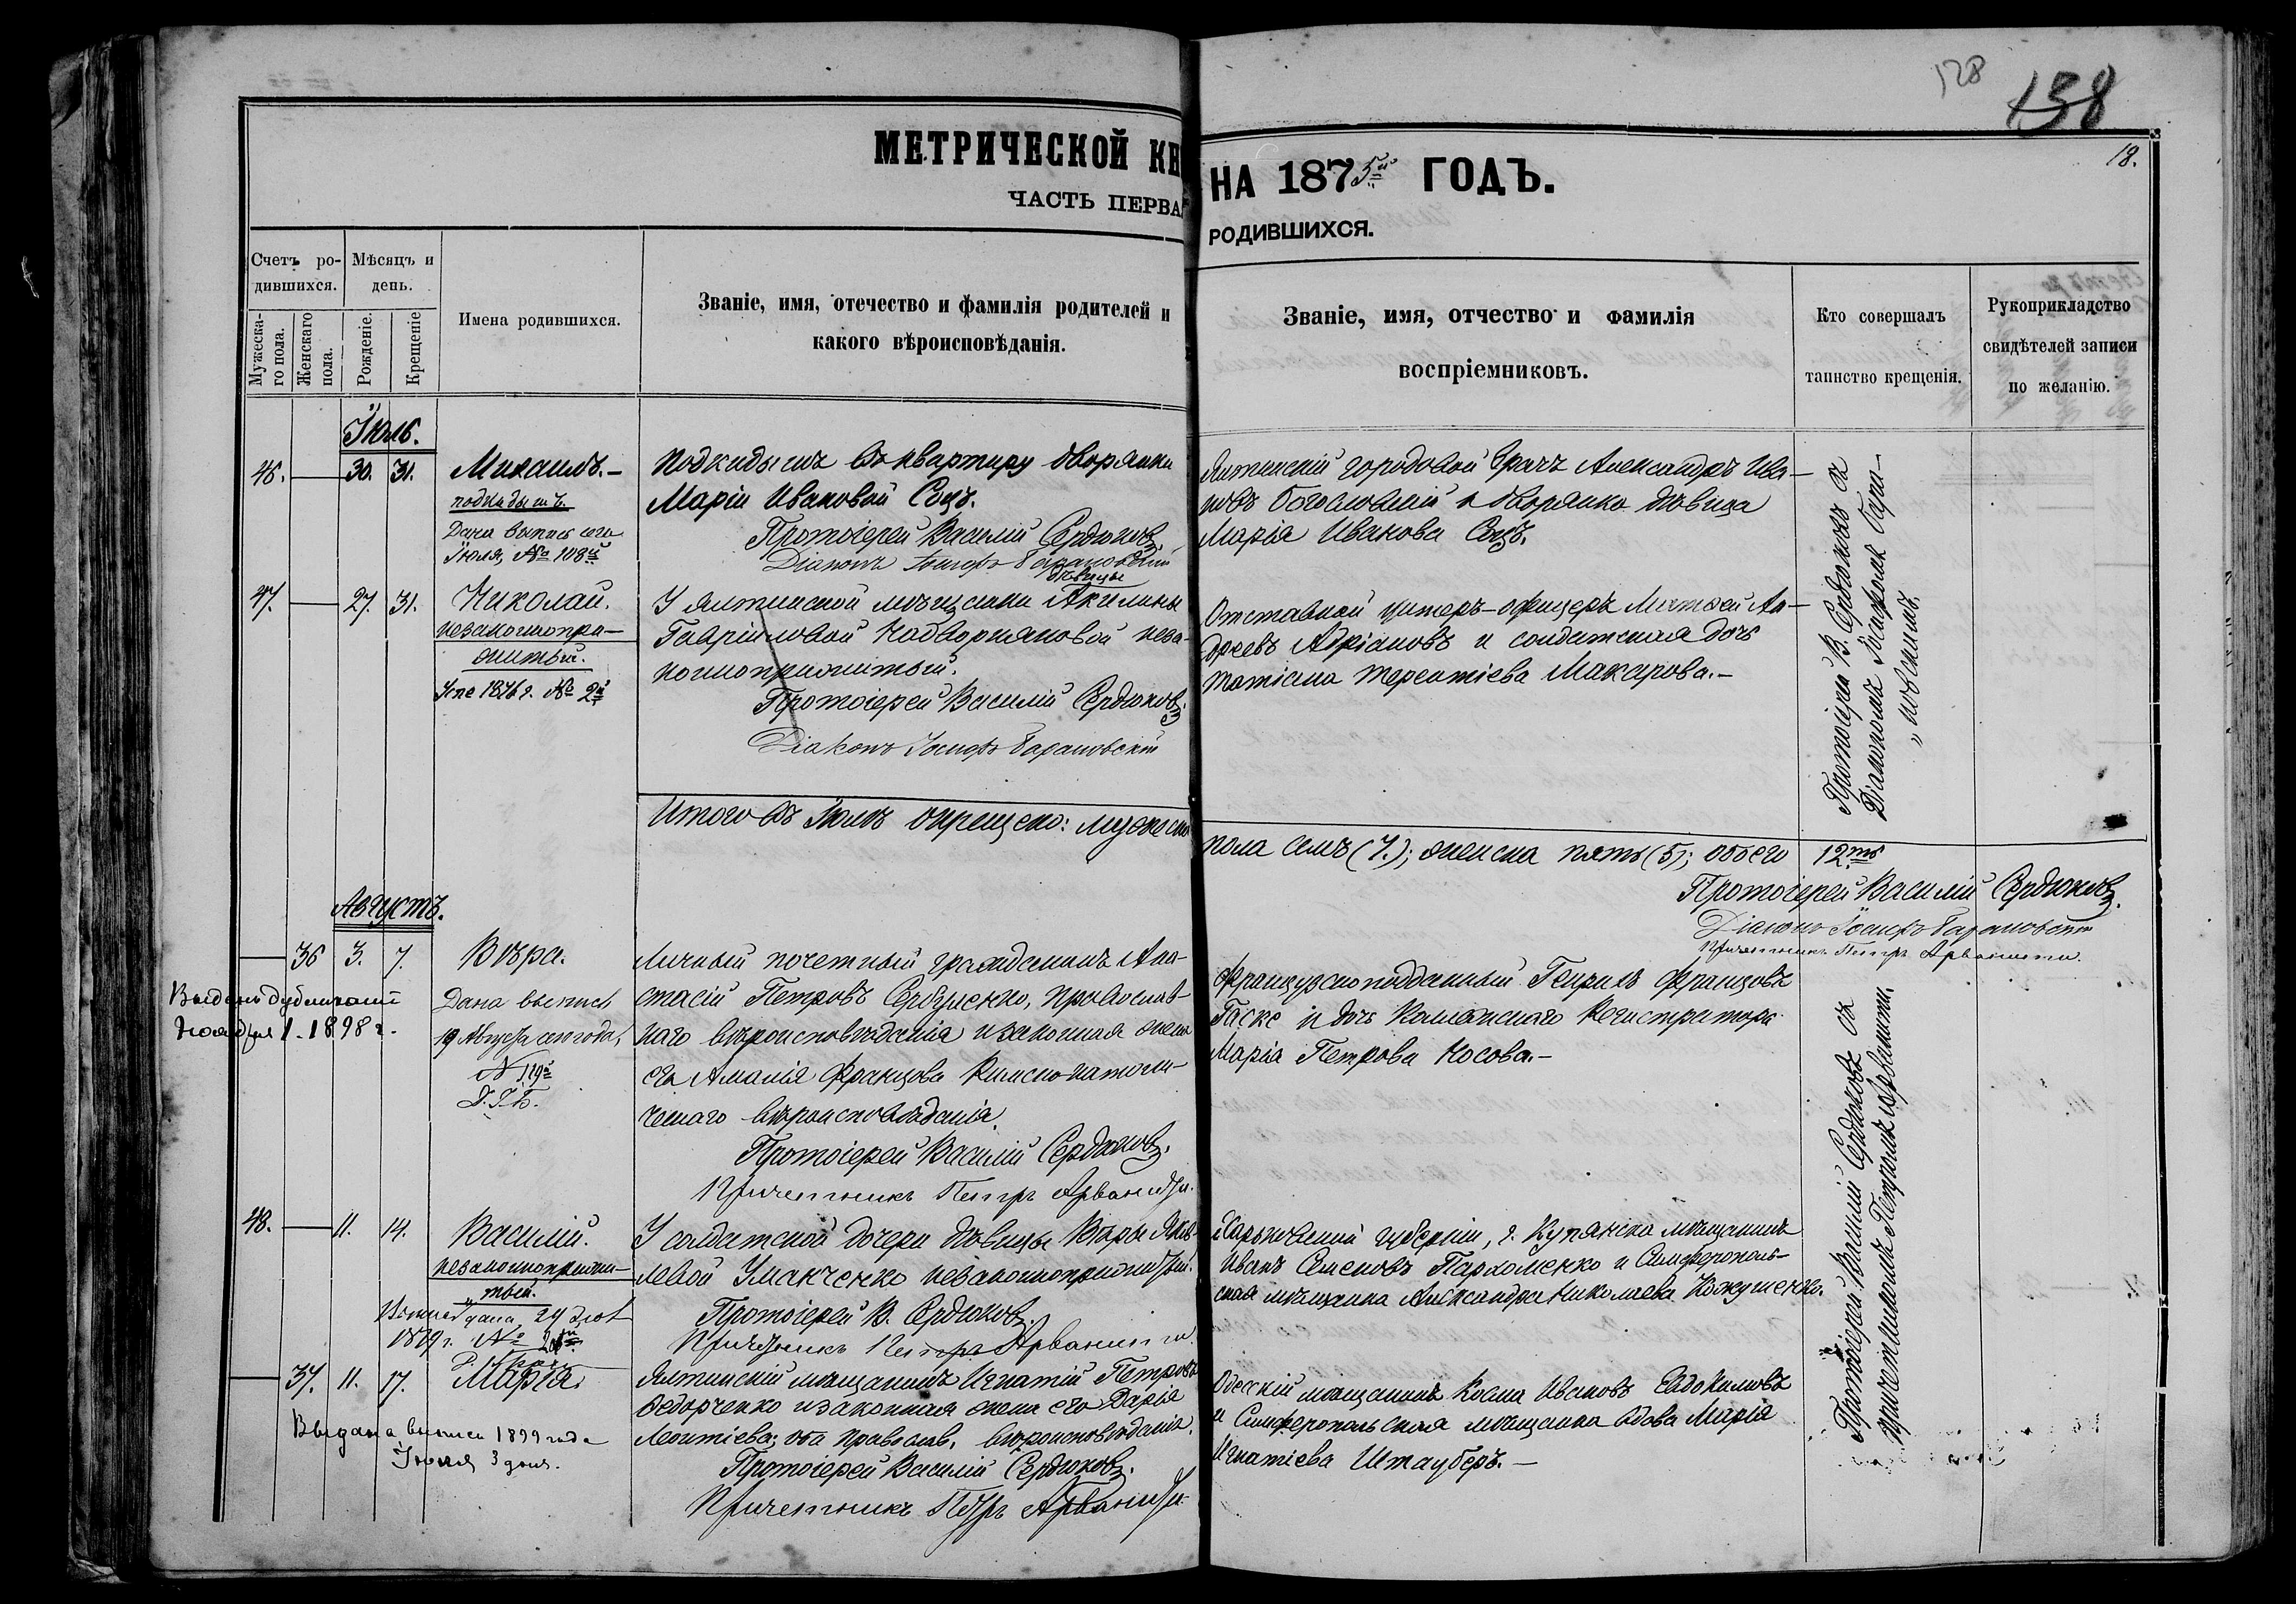 128
158
18.
МЕТРИЧЕСКОЙ КН
ЧАСТЬ ПЕРВА
НА 1875й ГОДЪ.
РОДИВШИХСЯ.
Счетъ ро-
дившихся.
Мужеска-
го пола.
Женскаго
пола.
Мѣсяцъ и
день.
Рожденіе.
Крещеніе
Имена родившихся.
Званіе, имя, отечество и фамилія родителей и
какого вѣроисповѣданія.
Званіе, имя, отчество и фамилія
воспріемниковъ.
Кто совершалъ
таинство крещенія.
Рукоприкладство
свидѣтелей записи
по желанію.
Іюль.
46.
30. 31.
Михаилъ.-
подкидышъ.
Дана выпись сего
Іюля, № 108й
Подкидышъ въ квартиру дворянки
Маріи Ивановой Соцъ.
Протоіерей Василій Сердюковъ
Діаконъ Іосифъ Барановскій
Ялтинскій городовой врачъ Александръ Ива-
новъ Богословскій и дворянка дѣвица
Марія Иванова Соцъ.
Протоіерей В. Сердюковъ съ
Діакономъ Іосифомъ Бара-
новскимъ.
47.
27. 31.
Николай.
незаконнопри-
житый.
1876 г. № 2й
дѣвицы
У Ялтинской мѣщанки Акилины
Гавріиловой Надворняковой неза-
конноприжитый.
Протоіерей Василій Сердюковъ.
Діаконъ Іосифъ Барановскій
Отставной унтеръ-офицеръ Матѳей Ан-
дреевъ Адріановъ и солдатская дочь
Татіана Терентіева Макарова.-
Итого въ Іюлѣ окрещено: мужеска
пола семь (7.); женска пять (5); обоего 12ть
Протоіерей Василій Сердюковъ.
Діаконъ Іосифъ Барановскій
Причетникъ Петръ Арванити.
Августъ.
36 3. 7.
Вѣра.
Выданъ дубликатъ
Ноября 1. 1898 г.
Дана выпись
19 Августа сего года,
№ 119й
Личный почетный гражданинъ Ана-
стасій Петровъ Сербуленко, православ-
наго вѣроисповѣданія и законная жена
его Амалія Францова Римско-католи-
ческаго вѣроисповѣданія.
Протоіерей Василій Сердюковъ.
Причетникъ Петръ Арванити.
Французскоподданный Генрихъ Францовъ
Гаске и дочь Коллежскаго Регистратора
Марія Петрова Носова.-
Протоіерей Василій Сердюковъ съ
причетникомъ Петромъ Арванити.
48.
11. 14.
Василій.
незаконноприжи-
тый.
дана 29
1879 г. №
У солдатской дочери дѣвицы Вѣры Яков-
левой Уманченко незаконноприжитый.
Протоіерей В. Сердюковъ.
Причетникъ Петръ Арванити.
Харьковской губерніи, г. Купянска мѣщанинъ
Иванъ Семеновъ Пархоменко и Симферополь-
ская мѣщанка Александра Николаева Кожушенко.
37. 11. 17.
Марія.
Выдана выпись 1899 года
Іюня 3 дня.
Ялтинскій мѣщанинъ Игнатій Петровъ
Ѳедорченко и законная жена его Дарія
Леонтіева; оба православ. вѣроисповѣданія.
Протоіерей Василій Сердюковъ.
Причетникъ Петръ Арванити.
Одесскій мѣщанинъ Косма Ивановъ Евдокимовъ
и Симферопольская мѣщанка вдова Марія
Игнатіева Штауберъ.-